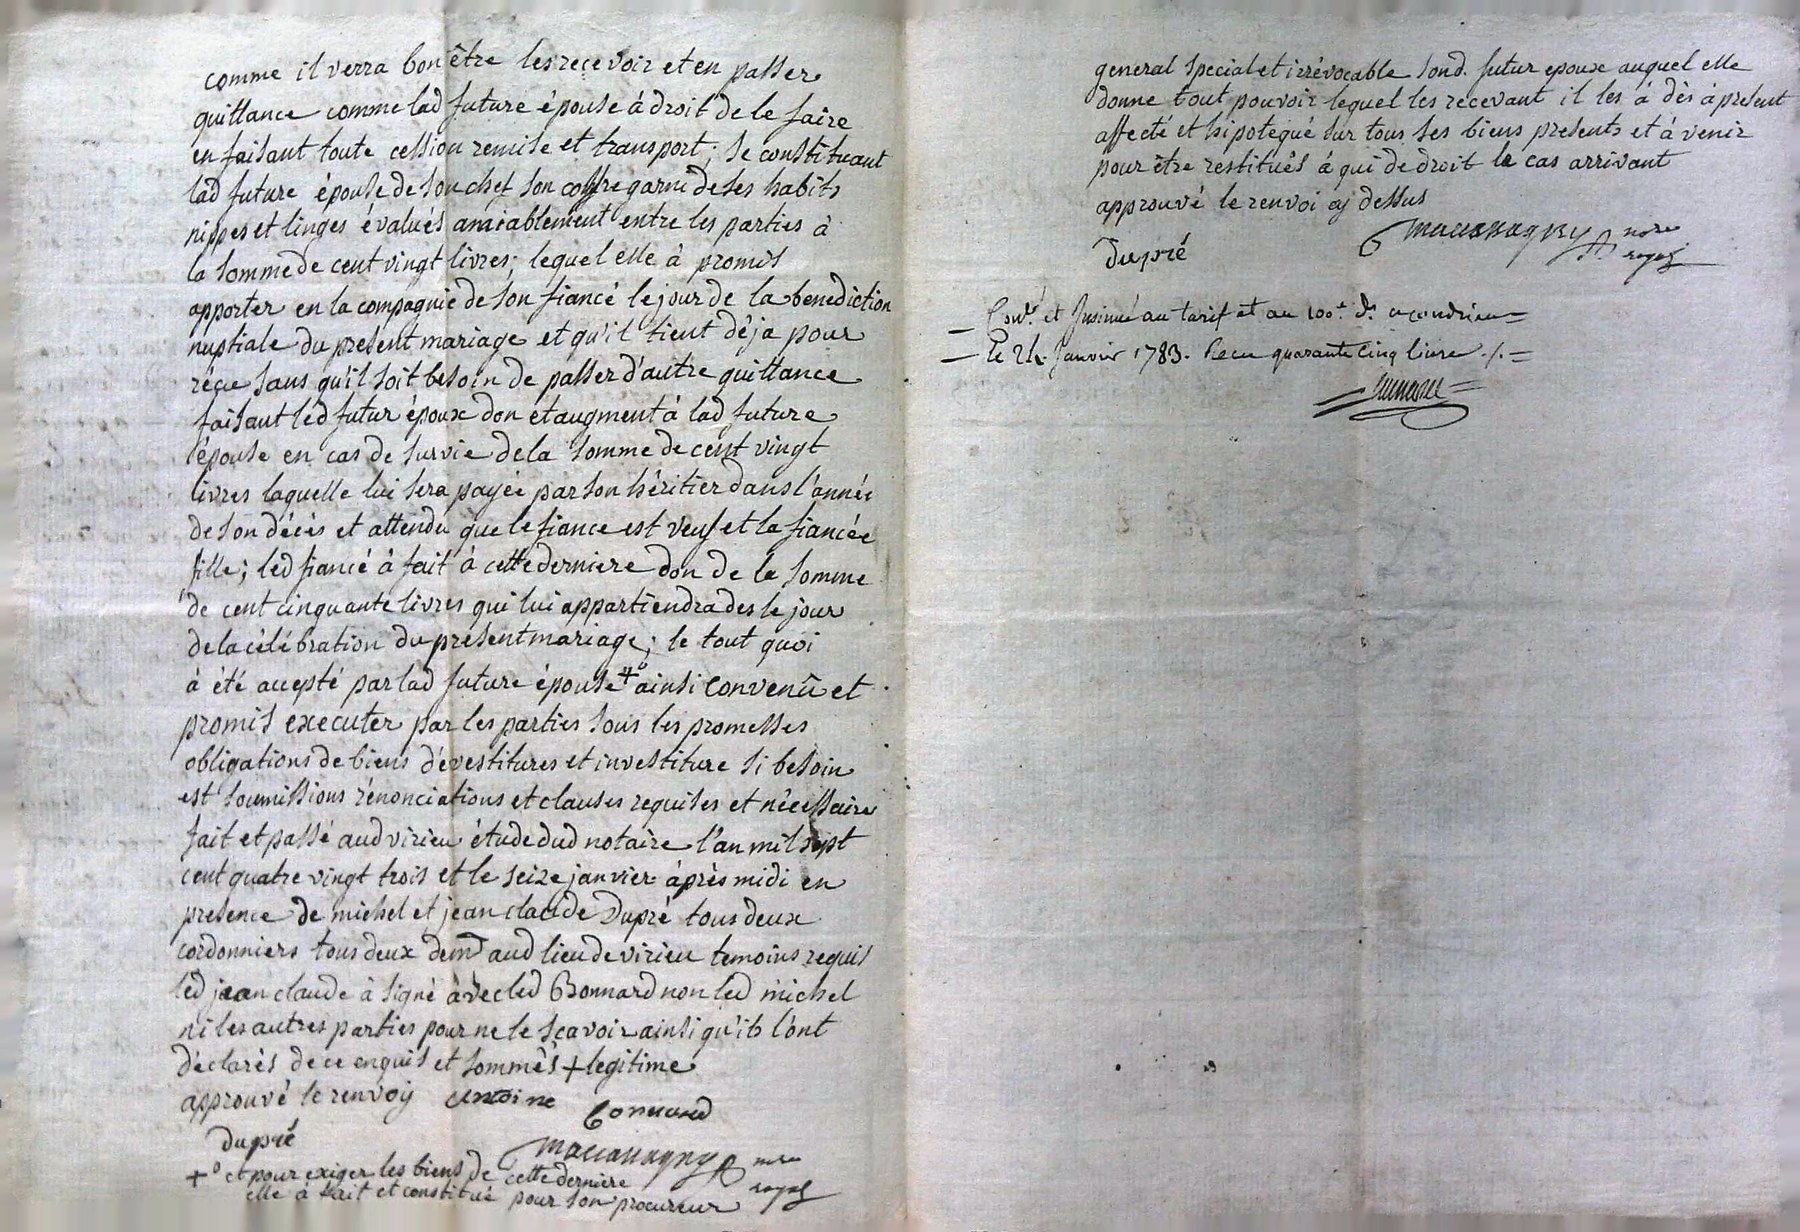 comme il verra bon être les recevoir et en passer
quittance comme lad future épouse à droit de le faire
en faisant toute cession remise et transport; se constituant
lad future épouse de son chef son coffre garni de ses habits
nippes et linges évalués amiablement entre les parties à
la somme de cent vingt livres; lequel elle à promis
apporter en la compagnie de son fiancé le jour de la benediction
nuptiale du present mariage et qu'il tient déja pour
réçue sans qu'il soit besoin de passer d'autre quittance
faisant léd futur époux don et augment à lad future
épouse en cas de survie de la somme de cent vingt
livres laquelle lui sera payée par son héritier dans l'année
de son décès et attendu que le fiance est veuf et la fiancée
fille; léd fiancé à fait à cette derniere don de la somme
de cent cinquante livres qui lui appartiendra des le jour
de la célébration du present mariage; le tout quoi
à été accepté par lad future épouse +° ainsi convenû et
promis executer par les parties sous les promesses
obligations de biens dévestitures et investiture si besoin
est soumissions rénonciations et clauses requises et nécessaire
fait et passé aud virieu étude dud notaire l'an mil sept
cent quatre vingt trois et le seize janvier àprès midi en
presence de michel et jean claude Dupré tous deux
cordonniers tous deux demt aud lieu de virieu temoins requis
léd jean claude à signé àvec led Bonnard non led michel
ni les autres parties pour ne le sçavoir ainsi qu'ils l'ont
déclarés de ce enquis et sommés + legitime
approuvé le renvoy antoine bonnard
dupré
+° et pour exiger les biens de cette derniere
elle à fait et constitué pour son procureur
royal
general special et irrévocable sond. futur epoux auquel elle
donne tout pouvoir lequel les recevant il les à dès àpresent
affecté et hipotequé sur tous ses biens presents et à venir
pour être restitués à qui de droit le cas arrivant
approuvé le renvoi cy dessus
dupré
royal
Con.lé et Insinué au tarif et au 100e d. a condrieu
Le 24 Janvier 1783. Recu quarante cinq livre